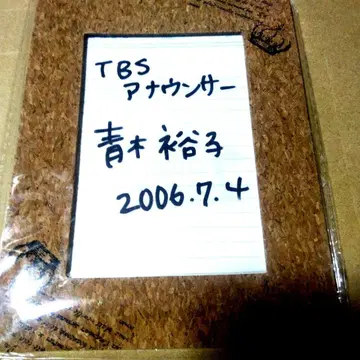 TBS
アナウンサー
青木裕子
2006.7.4